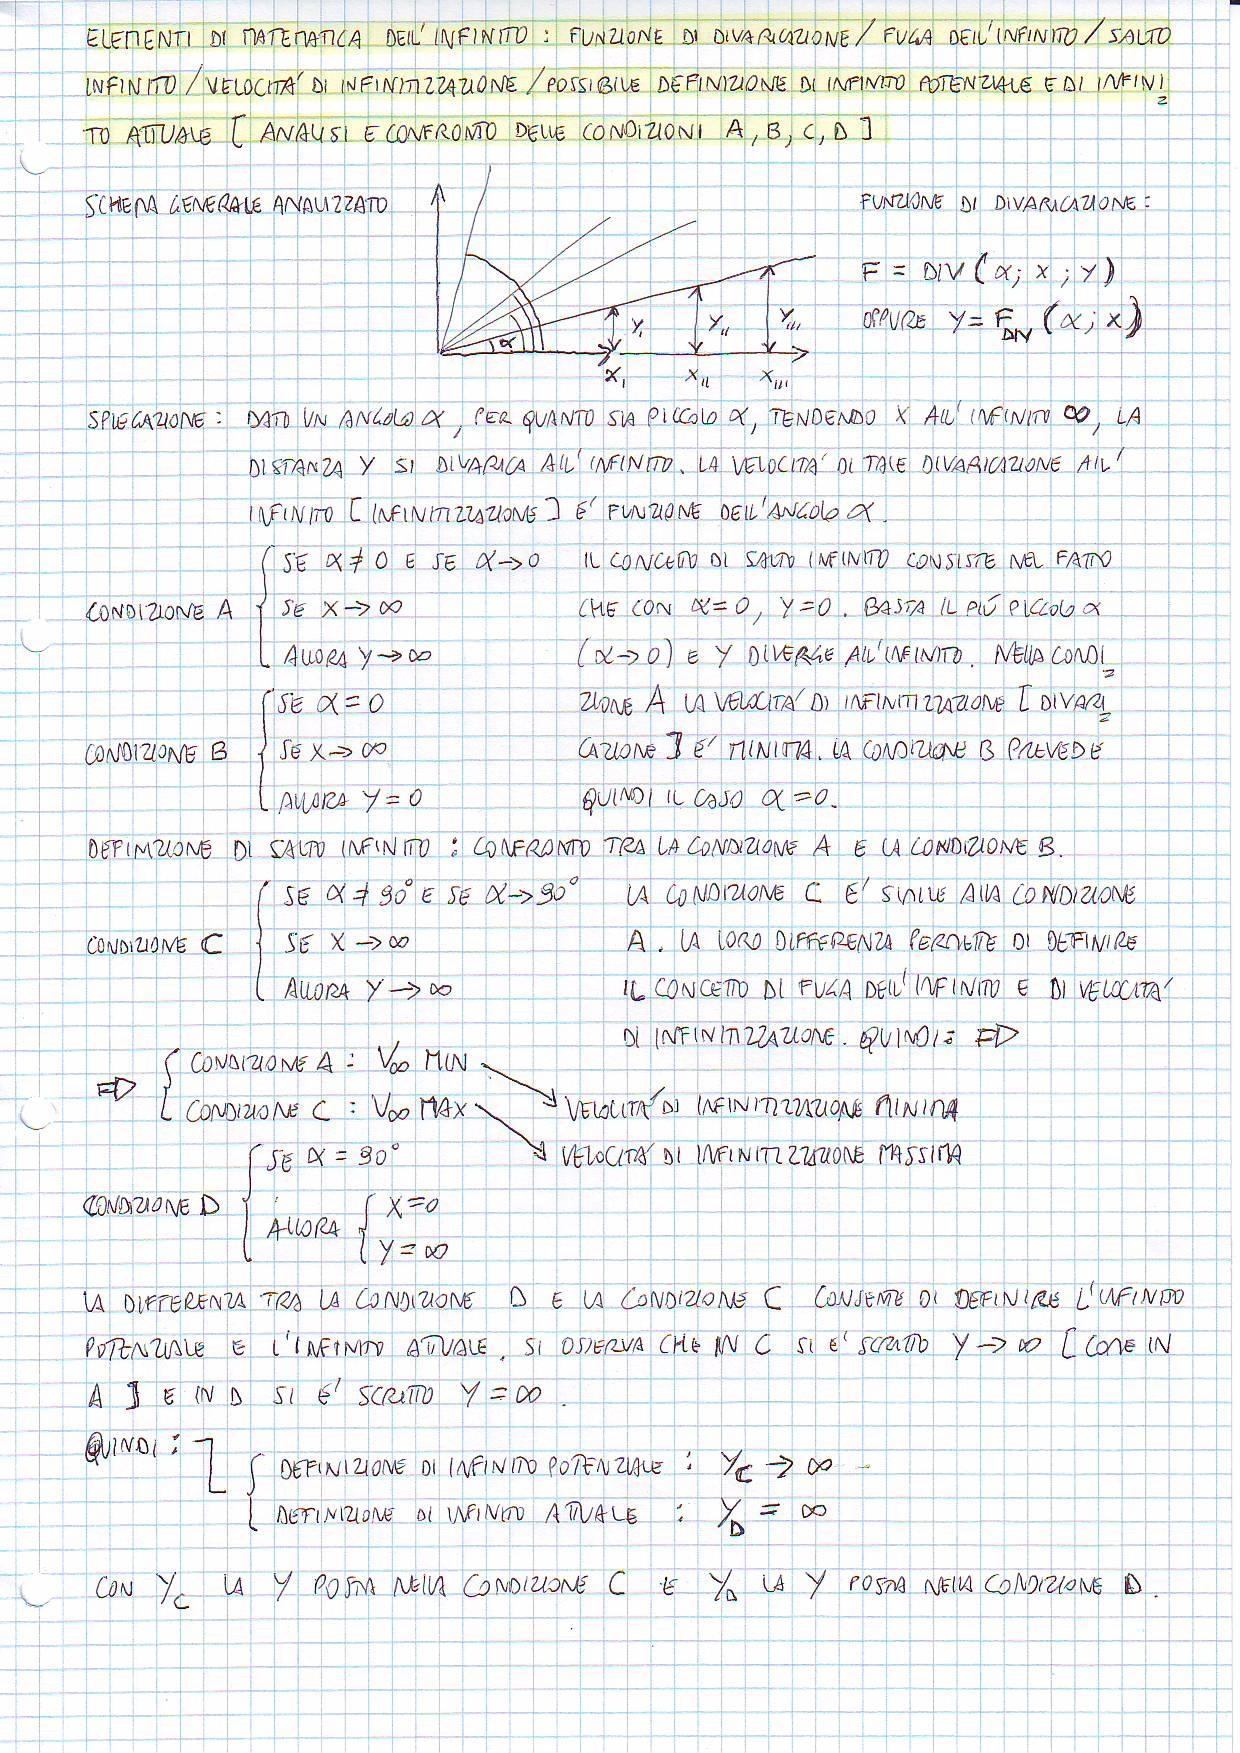 ELEMENTI DI MATEMATICA DELL'INFINITO : FUNZIONE DI DIVARICAZIONE / FUGA DELL'INFINITO / SALTO
INFINITO / VELOCITA' DI INFINITIZZAZIONE / POSSIBILE DEFINIZIONE DI INFINITO POTENZIALE E DI INFINI
TO ATTUALE [ ANALISI E CONFRONTO DELLE CONDIZIONI A, B, C, D ]
SCHEMA GENERALE ANALIZZATO
FUNZIONE DI DIVARICAZIONE :
F = DIV (α; X ; Y)
OPPURE Y = F DIV (α ; X)
α
Y, Y,, Y,,,
X, X,, X,,,
SPIEGAZIONE : DATO UN ANGOLO α, PER QUANTO SIA PICCOLO α, TENDENDO X ALL'INFINITO ∞, LA
DISTANZA Y SI DIVARICA ALL'INFINITO. LA VELOCITA' DI TALE DIVARICAZIONE ALL'
INFINITO [ INFINITIZZAZIONE ] E' FUNZIONE DELL'ANGOLO α.
CONDIZIONE A
SE α ≠ 0 E SE α → 0
SE X → ∞
ALLORA Y → ∞
IL CONCETTO DI SALTO INFINITO CONSISTE NEL FATTO
CHE CON α = 0, Y = 0. BASTA IL PIÚ PICCOLO α
(α → 0) E Y DIVERGE ALL'INFINITO. NELLA CONDI
ZIONE A LA VELOCITA' DI INFINITIZZAZIONE [ DIVARI
CAZIONE ] E' MINIMA. LA CONDIZIONE B PREVEDE
QUINDI IL CASO α = 0.
CONDIZIONE B
SE α = 0
SE X → ∞
ALLORA Y = 0
DEFINIZIONE DI SALTO INFINITO : CONFRONTO TRA LA CONDIZIONE A E LA CONDIZIONE B.
CONDIZIONE C
SE α ≠ 90° E SE α → 90°
SE X → ∞
ALLORA Y → ∞
LA CONDIZIONE C E' SIMILE ALLA CONDIZIONE
A. LA LORO DIFFERENZA PERMETTE DI DEFINIRE
IL CONCETTO DI FUGA DELL'INFINITO E DI VELOCITA'
DI INFINITIZZAZIONE. QUINDI :
CONDIZIONE A : V∞ MIN
CONDIZIONE C : V∞ MAX
VELOCITA' DI INFINITIZZAZIONE MINIMA
VELOCITA' DI INFINITIZZAZIONE MASSIMA
CONDIZIONE D
SE α = 90°
ALLORA
X = 0
Y = ∞
LA DIFFERENZA TRA LA CONDIZIONE D E LA CONDIZIONE C CONSENTE DI DEFINIRE L'INFINITO
POTENZIALE E L'INFINITO ATTUALE. SI OSSERVA CHE IN C SI E' SCRITTO Y → ∞ [ COME IN
A ] E IN D SI E' SCRITTO Y = ∞.
QUINDI :
DEFINIZIONE DI INFINITO POTENZIALE : Y C → ∞
DEFINIZIONE DI INFINITO ATTUALE : Y D = ∞
CON Y C LA Y POSTA NELLA CONDIZIONE C E Y D LA Y POSTA NELLA CONDIZIONE D.